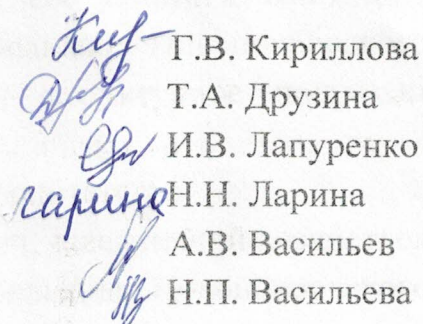 Г.В. Кириллова
Т.А. Друзина
И.В. Лапуренко
Ларина Н.Н. Ларина
А.В. Васильев
Н.П. Васильева